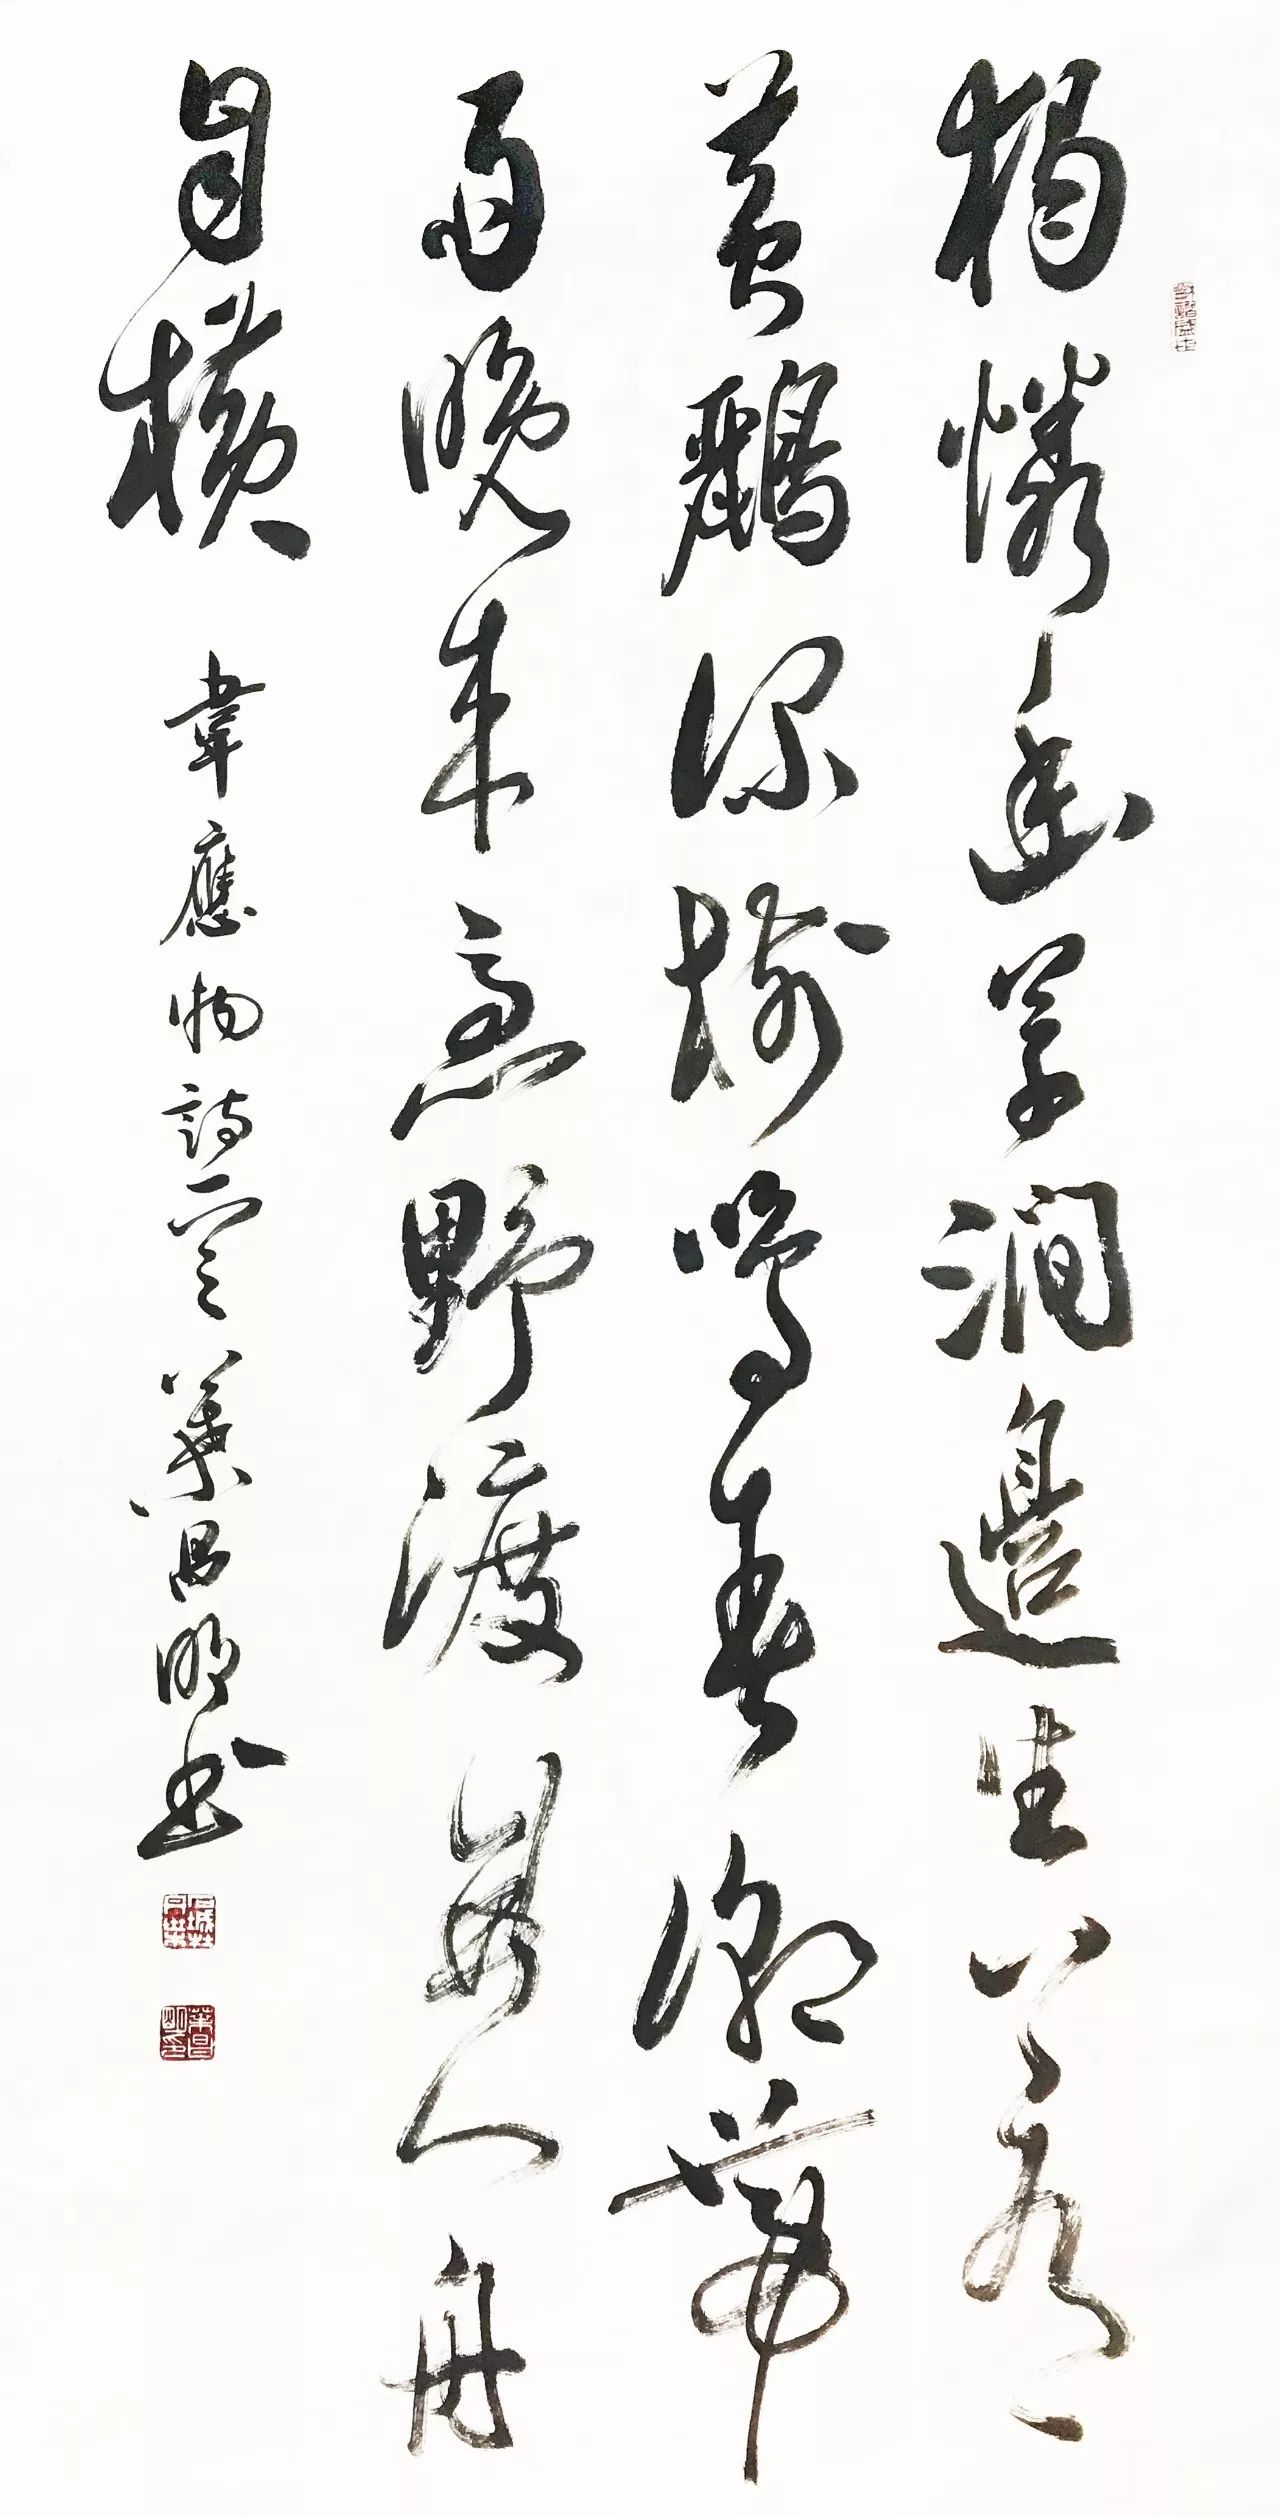 獨憐幽草澗邊生上有
黃鸝深樹鳴春潮帶
雨晚来急野渡無人舟
自橫 韋應物詩一首 葉昌明书
葉昌明印